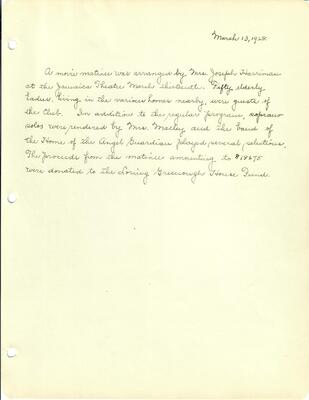 March 13, 1928
A movie matinee was arranged by Mrs. Joseph Harriman
at the Jamaica Theatre March thirteenth. Fifty elderly
ladies, living in the various homes nearby, were guests of
the Club. In addition to the regular program, soprano
solos were rendered by Mrs. and the band of
the Home of the Angel Guardian played several selections.
The proceeds from the matinee amounting to $186.75
were donated to the Loring Greenough House Fund.